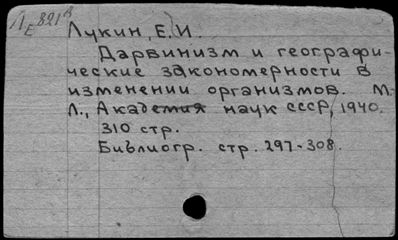 Л 821д
Е
Лукин, Е.И.
Дарвинизм и географи-
ческие закономерности в
изменении организмов. М.-
Л., Академия наук СССР, 1940.
310 стр.
Библиогр. стр. 297-308.